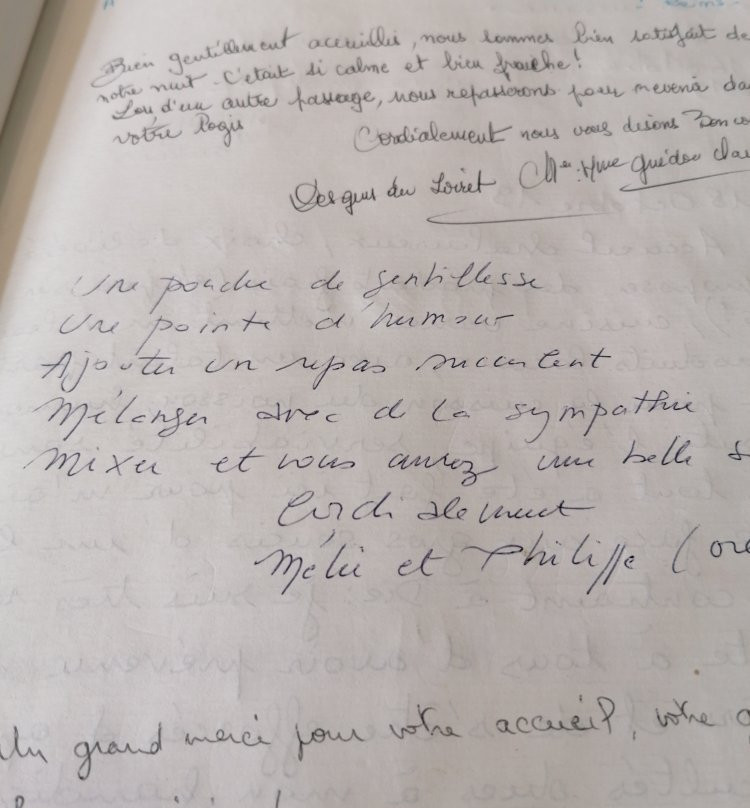 Bien gentillement acceuillis, nous sommes bien satisfait de
notre nuit. C'était si calme et bien fraîche!
Lors d'un autre passage, nous repasserons pour revenir da
votre logis
Cordialement nous vous disons Bon co
Des gens du Loiret Mr et Mme Guédou Cla
Une pouche de gentillesse
Une pointe d'humour
Ajouter un repas succulent
Mélanger avec d la sympathie
Mixer et vous aurez une belle s
Cordialement
et Philippe (
Un grand merci pour votre accueil, votre g